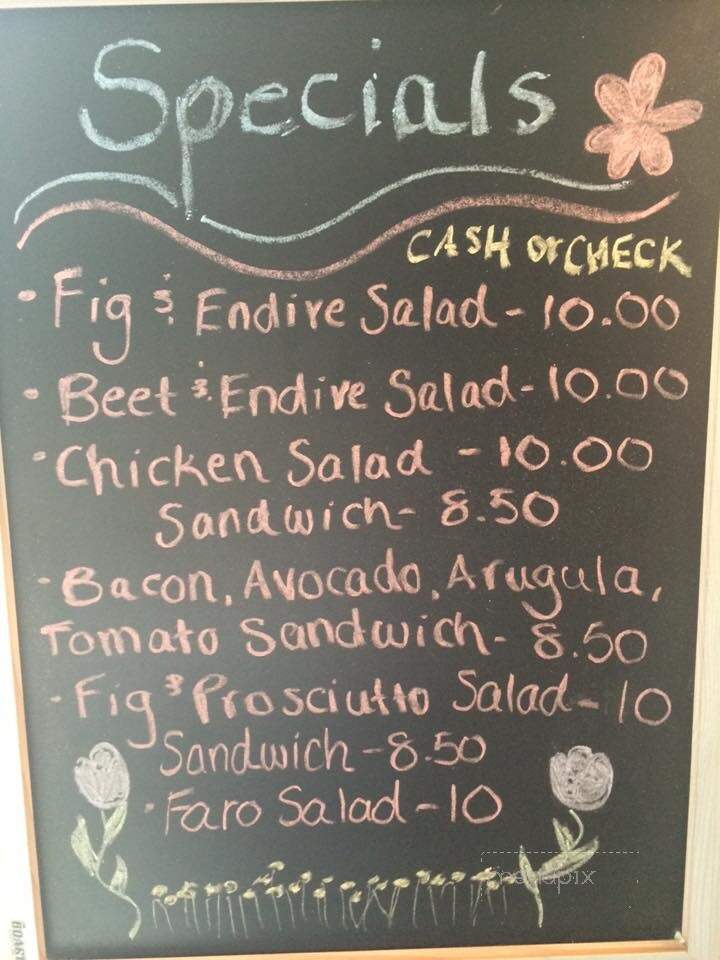 Specials
CASH or CHECK
• Fig & Endive Salad - 10.00
• Beet & Endive Salad - 10.00
• Chicken Salad - 10.00
Sandwich - 8.50
- Bacon, Avocado, Arugula,
Tomato Sandwich - 8.50
- Fig & Prosciutto Salad - 10
Sandwich - 8.50
• Faro Salad - 10
menupix